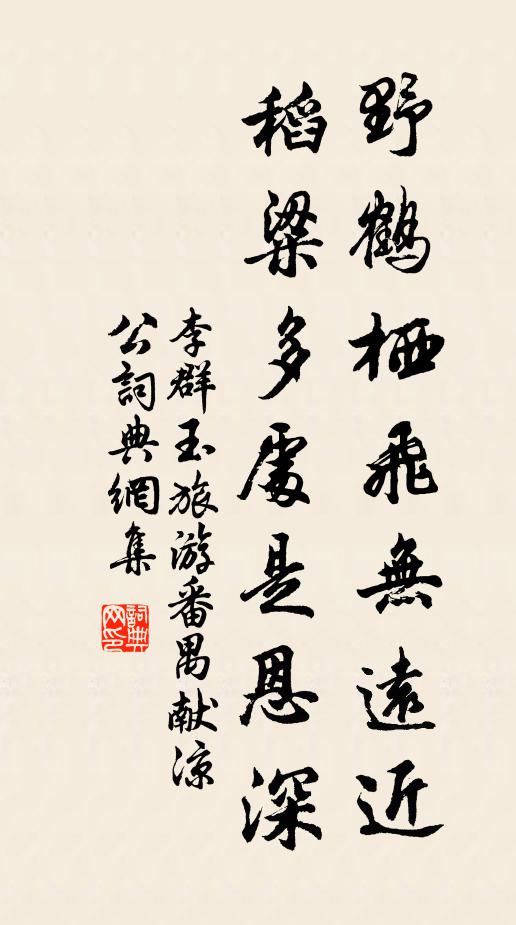 野鶴栖飛無遠近
稻粱多處是恩深
李群玉旅游番禺献凉
公詞典網集
詞典
网印